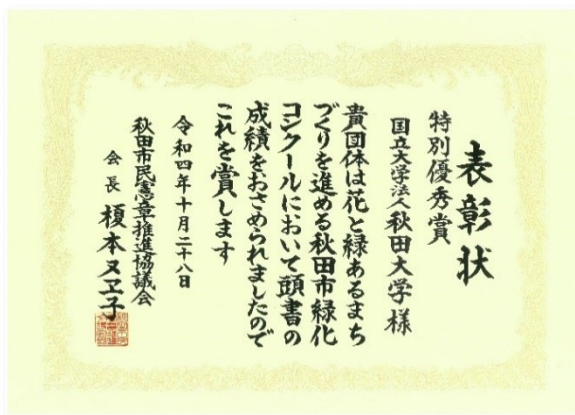 表彰状
特別優秀賞
国立大学法人秋田大学様
貴団体は花と緑あるまち
づくりを進める秋田市緑化
コンクールにおいて頭書の
成績をおさめられましたので
これを賞します
令和四年十月二十八日
秋田市民憲章推進協議会
会長 榎本又ヱ子